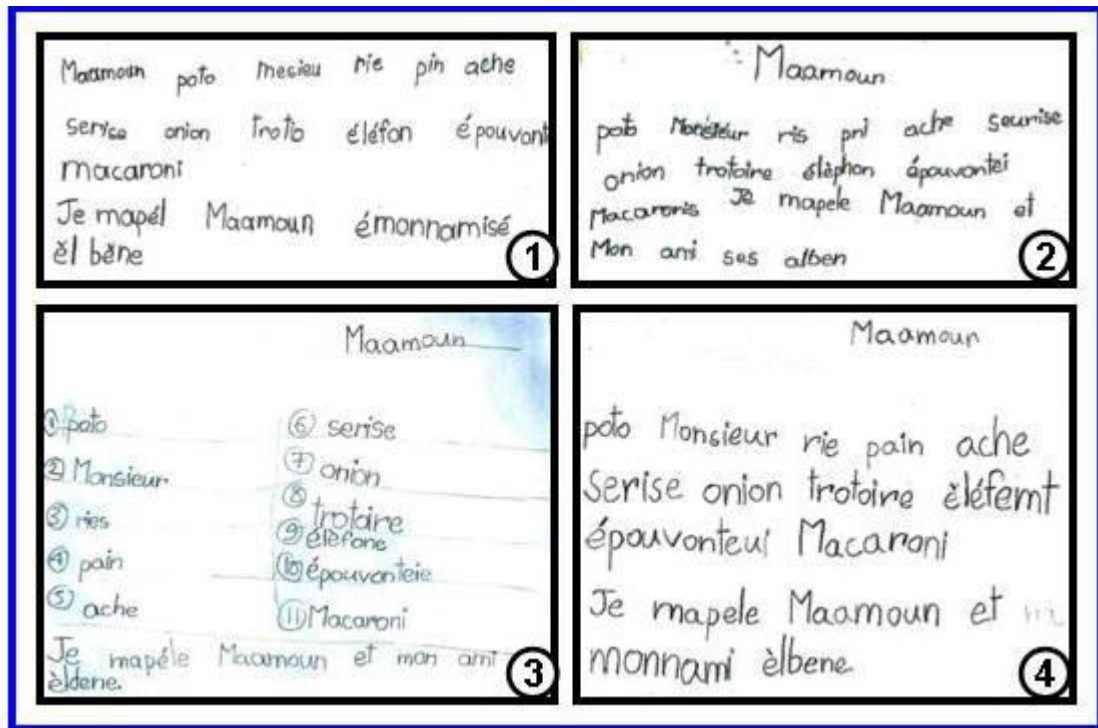 Maamoun poto mesieu rie pin ache
serise onion trotto éléfon épouvont
macaroni
Je mapél Maamoun émonnamisé
ĕl bĕne
1
Maamoun
poto Monsieur ris pni ache seurise
onion trotoire éléphon épouvontei
Macaronis Je mapele Maamoun et
Mon ami ses alben
2
Maamoun
① poto
② Monsieur
③ ries
④ pain
⑤ ache
⑥ serise
⑦ onion
⑧ trotoire
⑨ éléfone
⑩ épouvonteie
⑪ Macaroni
Je mapéle Maamoun et mon ami
èldene.
3
Maamoun
poto Monsieur rie pain ache
serise onion trotoire éléfemt
épouvonteui Macaroni
Je mapele Maamoun et
monnami èlbene.
4